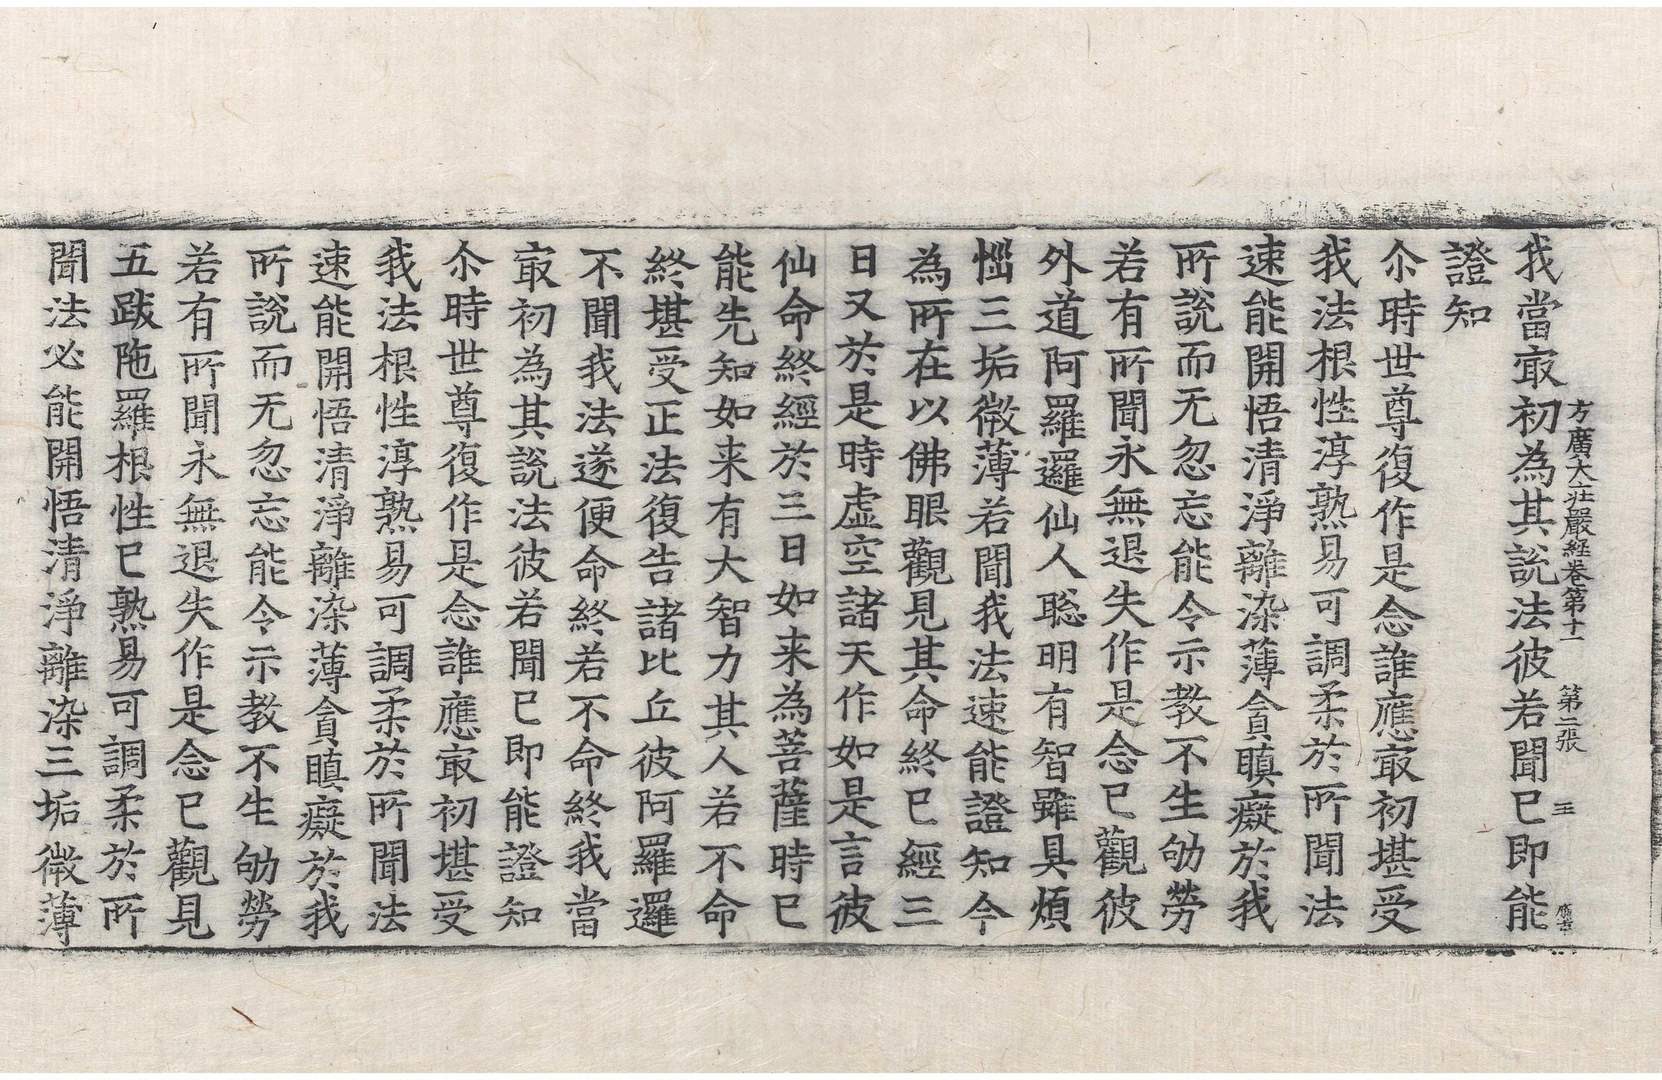 方廣大荘嚴經卷第十一　第二張　王
我當㝡初為其說法彼若聞已即能
證知
尒時世尊復作是念誰應㝡初堪受
我法根性淳熟易可調柔於所聞法
速能開悟清淨離染薄貪瞋癡於我
所說而无忽忘能令示教不生劬勞
若有所聞永無退失作是念已觀彼
外道阿羅邏仙人聡明有智雖具煩
惱三垢微薄若聞我法速能證知今
為所在以佛眼觀見其命終已經三
日又於是時虛空諸天作如是言彼
仙命終經於三日如来為菩薩時已
能先知如来有大智力其人若不命
終堪受正法復告諸比丘彼阿羅邏
不聞我法遂便命終若不命終我當
㝡初為其說法彼若聞已即能證知
尒時世尊復作是念誰應㝡初堪受
我法根性淳熟易可調柔於所聞法
速能開悟清淨離染薄貪瞋癡於我
所說而无忽忘能令示教不生劬勞
若有所聞永無退失作是念已觀見
五跋陁羅根性已熟易可調柔於所
聞法必能開悟清淨離染三垢微薄